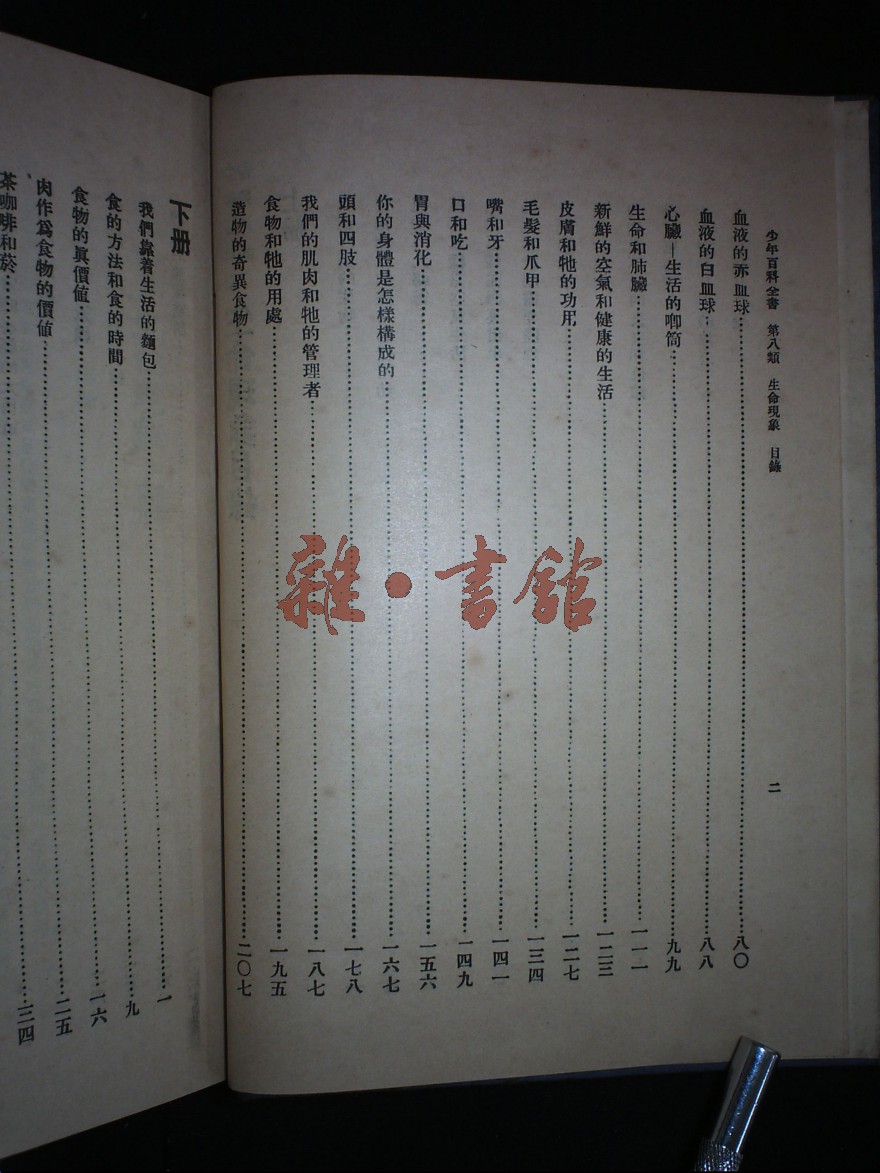 少年百科全書 第八類 生命現象 目錄 二
血液的赤血球 八〇
血液的白血球 八八
心臟—生活的唧筒 九九
生命和肺臟 一一一
新鮮的空氣和健康的生活 一二三
皮膚和牠的功用 一二七
毛髮和爪甲 一三四
嘴和牙 一四一
口和吃 一四九
胃與消化 一五六
你的身體是怎樣構成的 一六七
頭和四肢 一七八
我們的肌肉和牠的管理者 一八七
食物和牠的用處 一九五
造物的奇異食物 二〇七
下册
我們靠着生活的麵包 一
食的方法和食的時間 九
食物的眞價値 一六
肉作爲食物的價値 二五
茶咖啡和菸 三四
雜·書館